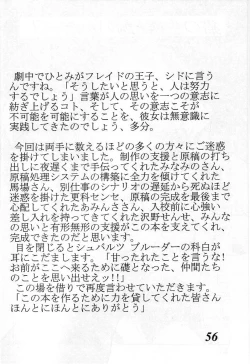 劇中でひとみがフレイドの王子、シドに言う
んですね。「そうしたいと思うと、人は努力
するでしょう」言葉が人の思いを一つの意志に
紡ぎ上げるコト、そして、その意志こそが
不可能を可能にすることを、彼女は無意識に
実践してきたのでしょう、多分。
今回は両手に数えるほどの多くの方々にご迷惑
を掛けてしまいました。制作の支援と原稿の打ち
出しに夜遅くまで手伝ってくれたみなみさん、
原稿処理システムの構築に全力を傾けてくれた
馬場さん、別仕事のシナリオの遅延から死ぬほど
迷惑を掛けた更科センセ、原稿の完成を最後まで
心配してくれたあみんさん、入校前に心強い
差し入れを持ってきてくれた沢野せんせ、みんな
の思いと有形無形の支援がこの本を支えてくれ、
完成できたのだと思います。
目を閉じるとシュバルツ ブルーダーの科白が
耳にこだまします。「甘ったれたことを言うな！
お前がここへ来るために礎となった、仲間たち
のことを思い出せェッ!!」
この場を借りて再度言わせていただきます。
「この本を作るために力を貸してくれた皆さん
ほんとにほんとにありがとう」
56